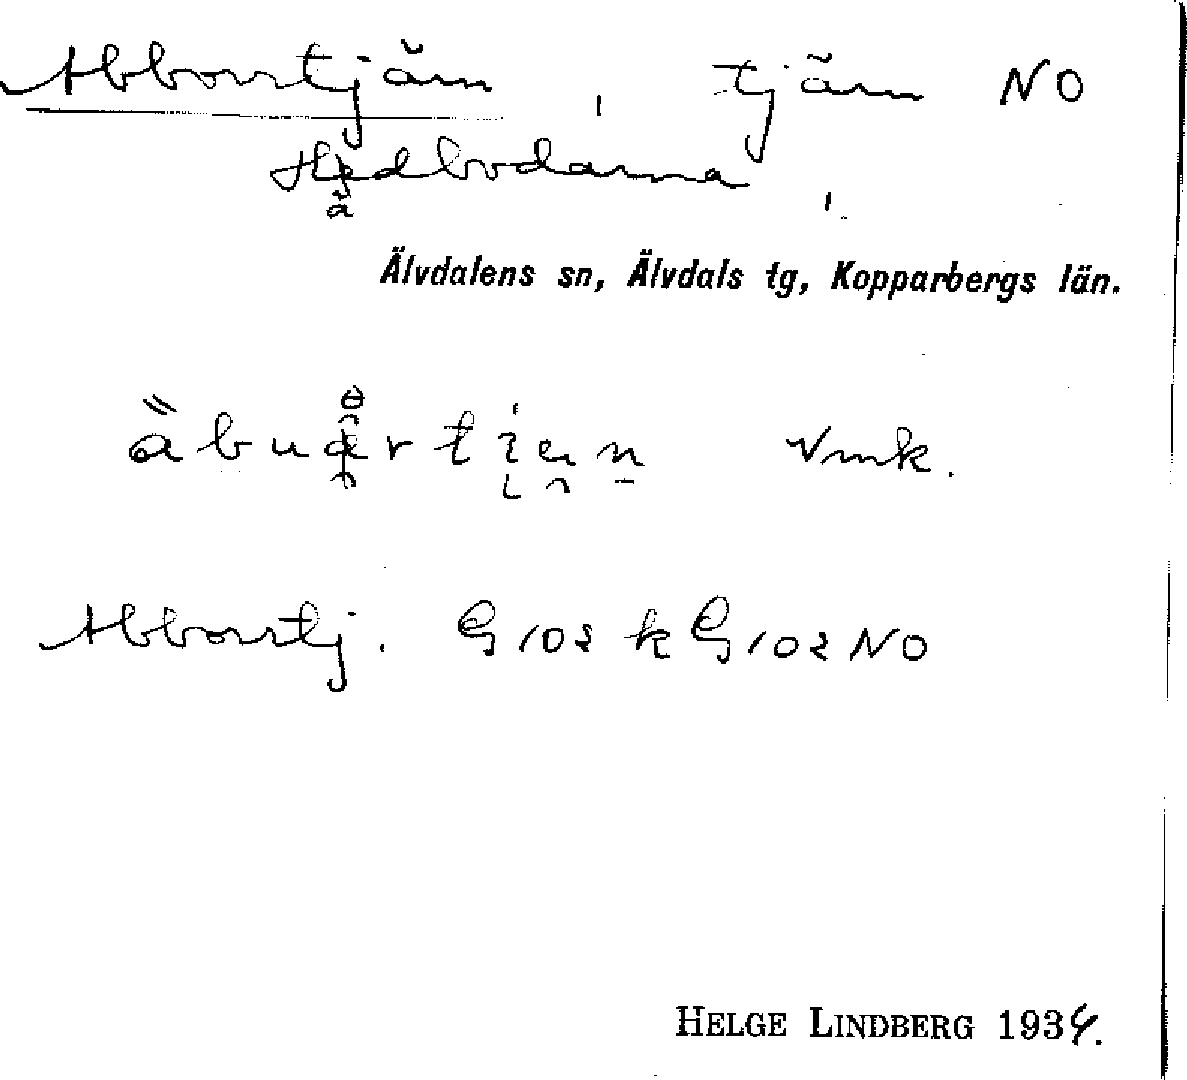 Abborrtjärn, tjärn NO
Hedbodarna,
ä
Älvdalens sn, Älvdals tg, Kopparbergs län.
Vmk.
Abborrtj. G 102 k G 102 NO
HELGE LINDBERG 1934.